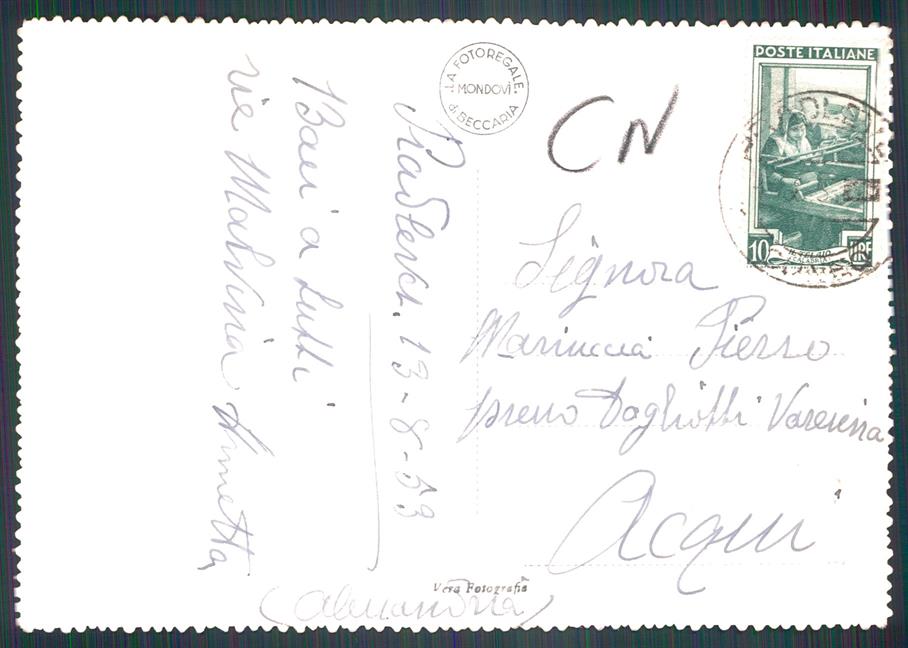 LA FOTOREGALE
MONDOVÌ
di BECCARIA
CN
POSTE ITALIANE
10 LIRE
13-8-53
Baci a tutti
vie Malvina
Signora
Mariuccia Pierro
Dogliotti
Acqui
(Alessandria)
Vera Fotografia